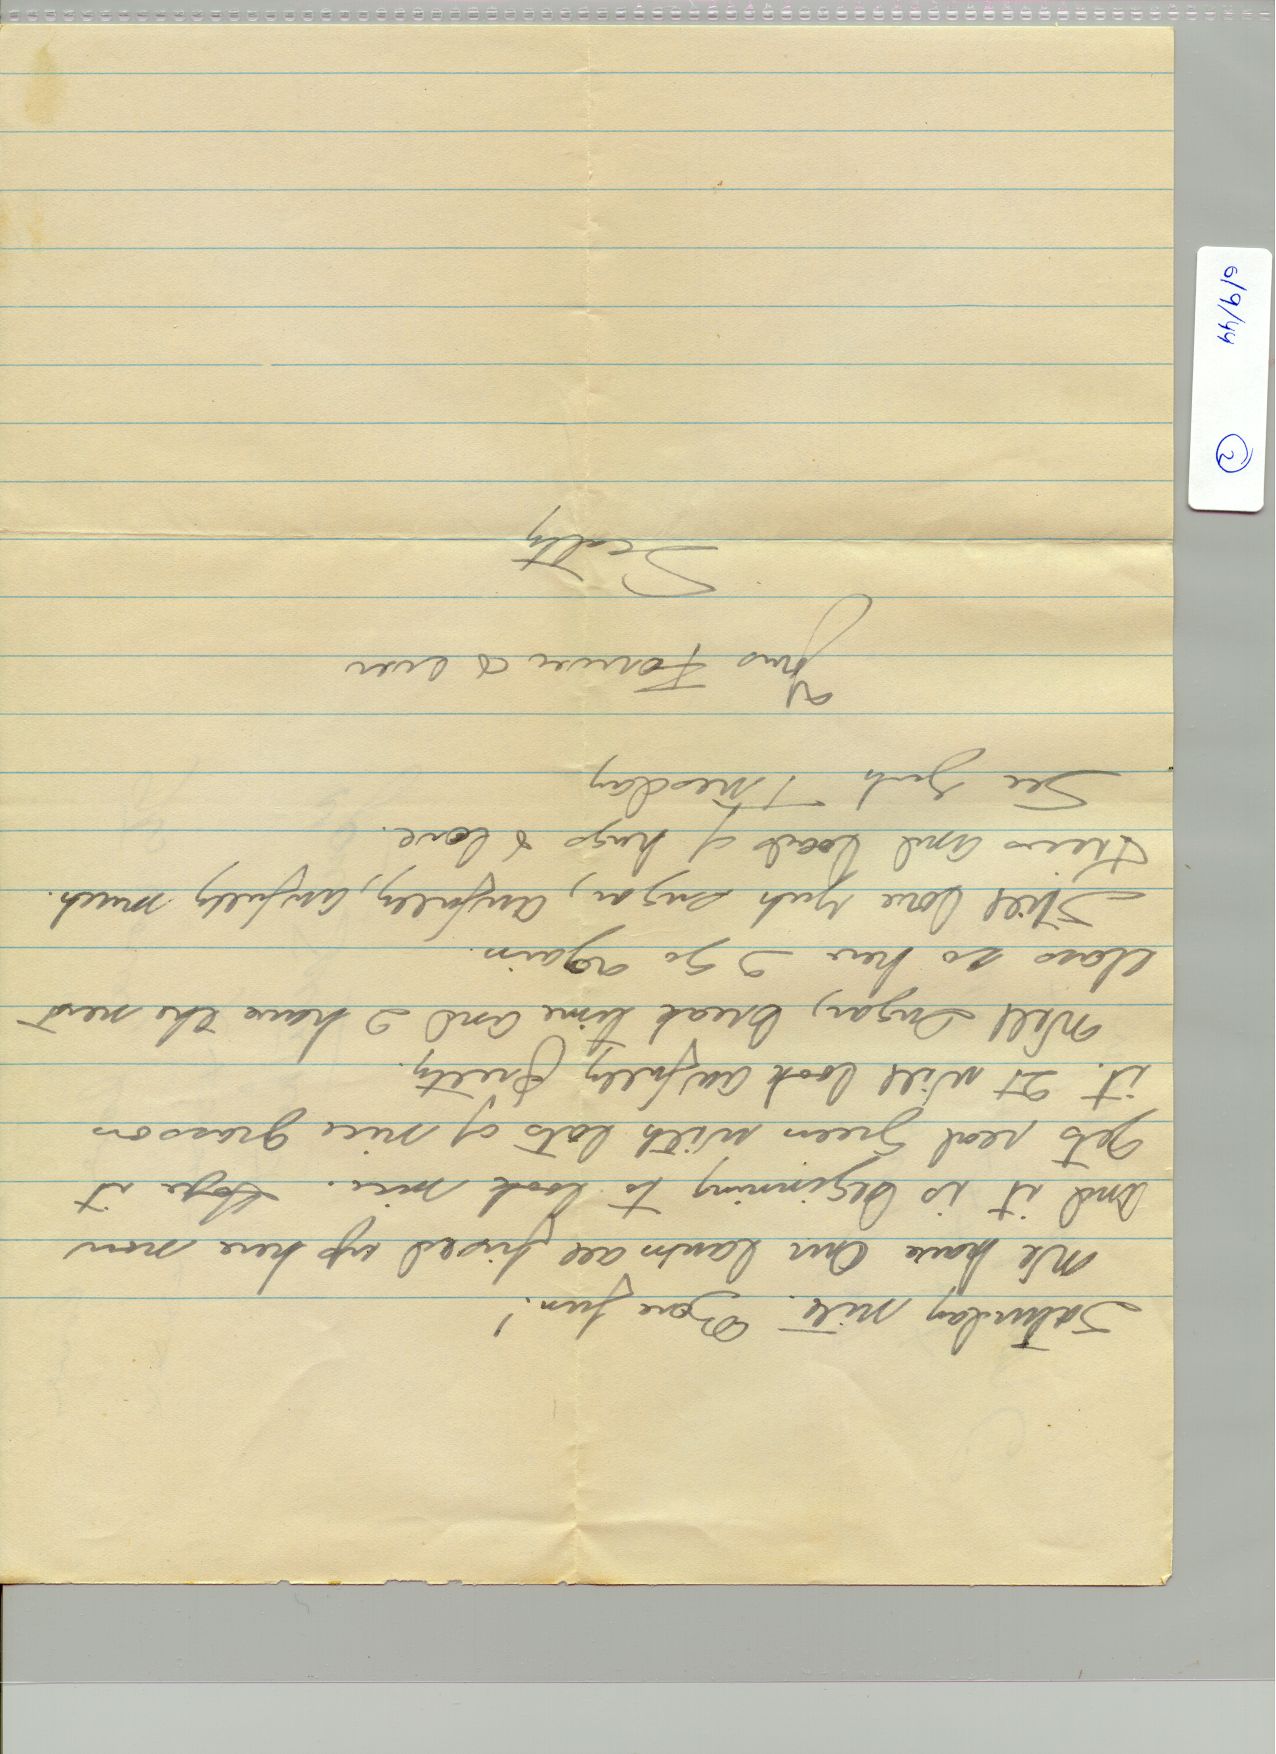 Saturday nite. Some fun!
We have our lawn all fixed up here now
and it is beginning to look nice. Hope it
gets real green with lots of nice grass on
it. It will look awfully pretty.
Well Sugar, break time and I have the next
class so here I go again.
Still love yuh sugar, awfully, awfully much.
and loads of hugs & love.
See yuh Tuesday
Yours Forever & ever
Scotty
6/9/44
2